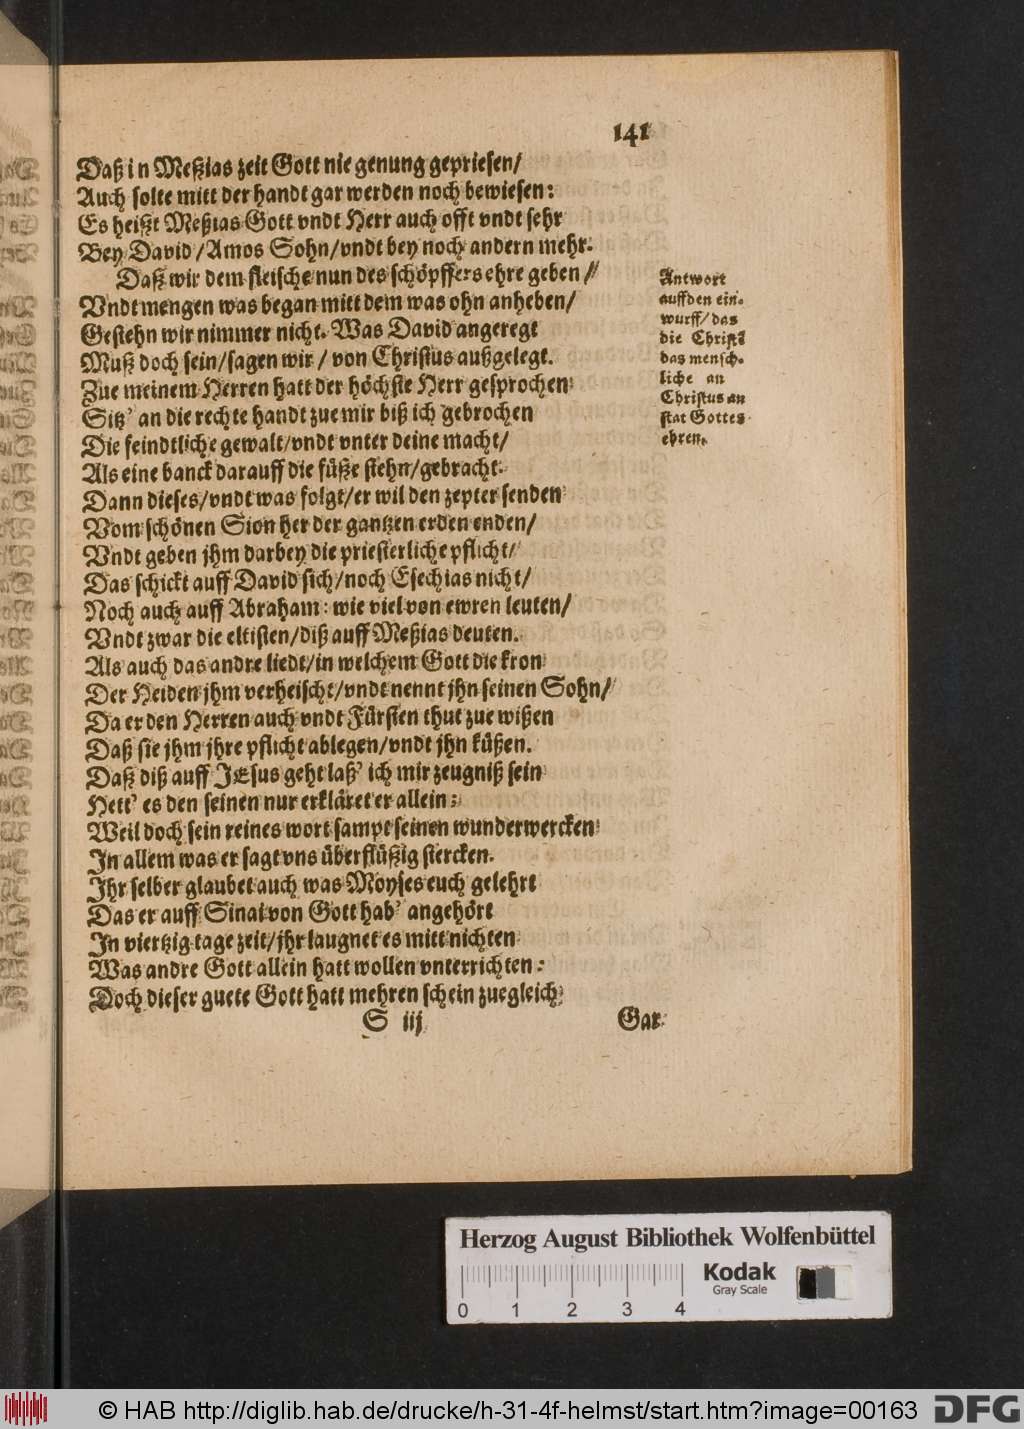 141
Daß in Meßias zeit Gott nie genung gepriesen/
Auch solte mitt der handt gar werden noch bewiesen:
Es heißt Meßias Gott vndt Herr auch offt vndt sehr
Bey David/Amos Sohn/vndt bey noch andern mehr.
Daß wir dem fleische nun des schöpffers ehre geben/
Vndt mengen was began mitt dem was ohn anheben/
Gestehn wir nimmer nicht. Was David angeregt
Muß doch sein/sagen wir/von Christus außgelegt.
Zue meinem Herren hatt der höchste Herr gesprochen
Sitz' an die rechte handt zue mir biß ich gebrochen
Die feindtliche gewalt/vndt vnter deine macht/
Als eine banck darauff die füße stehn/gebracht.
Dann dieses/vndt was folgt/er wil den zepter senden
Vom schönen Sion her der gantzen erden enden/
Vndt geben jhm darbey die priesterliche pflicht/
Das schickt auff David sich/noch Esechias nicht/
Noch auch auff Abraham: wie viel von ewren leuten/
Vndt zwar die eltisten/diß auff Meßias deuten.
Als auch das andre liedt/in welchem Gott die kron
Der Heiden jhm verheischt/vndt nennt jhn seinen Sohn/
Da er den Herren auch vndt Fürsten thut zue wißen
Daß sie jhm jhre pflicht ablegen/vndt jhn küßen.
Daß diß auff JEsus geht laß' ich mir zeugniß sein
Hett' es den seinen nur erkläret er allein:
Weil doch sein reines wort sampt seinen wunderwercken
In allem was er sagt vns überflüßig stercken.
Ihr selber glaubet auch was Moyses euch gelehrt
Das er auff Sinai von Gott hab' angehört
In viertzig tage zeit/jhr laugnet es mitt nichten
Was andre Gott allein hatt wollen vnterrichten:
Doch dieser guete Gott hatt mehren schein zuegleich
S iij
Gar
Antwort
auff den ein-
wurff/das
die Christē
das mensch-
liche an
Christus an
stat Gottes
ehren.
Herzog August Bibliothek Wolfenbüttel
0 1 2 3 4
Kodak
Gray Scale
© HAB http://diglib.hab.de/drucke/h-31-4f-helmst/start.htm?image=00163
DFG